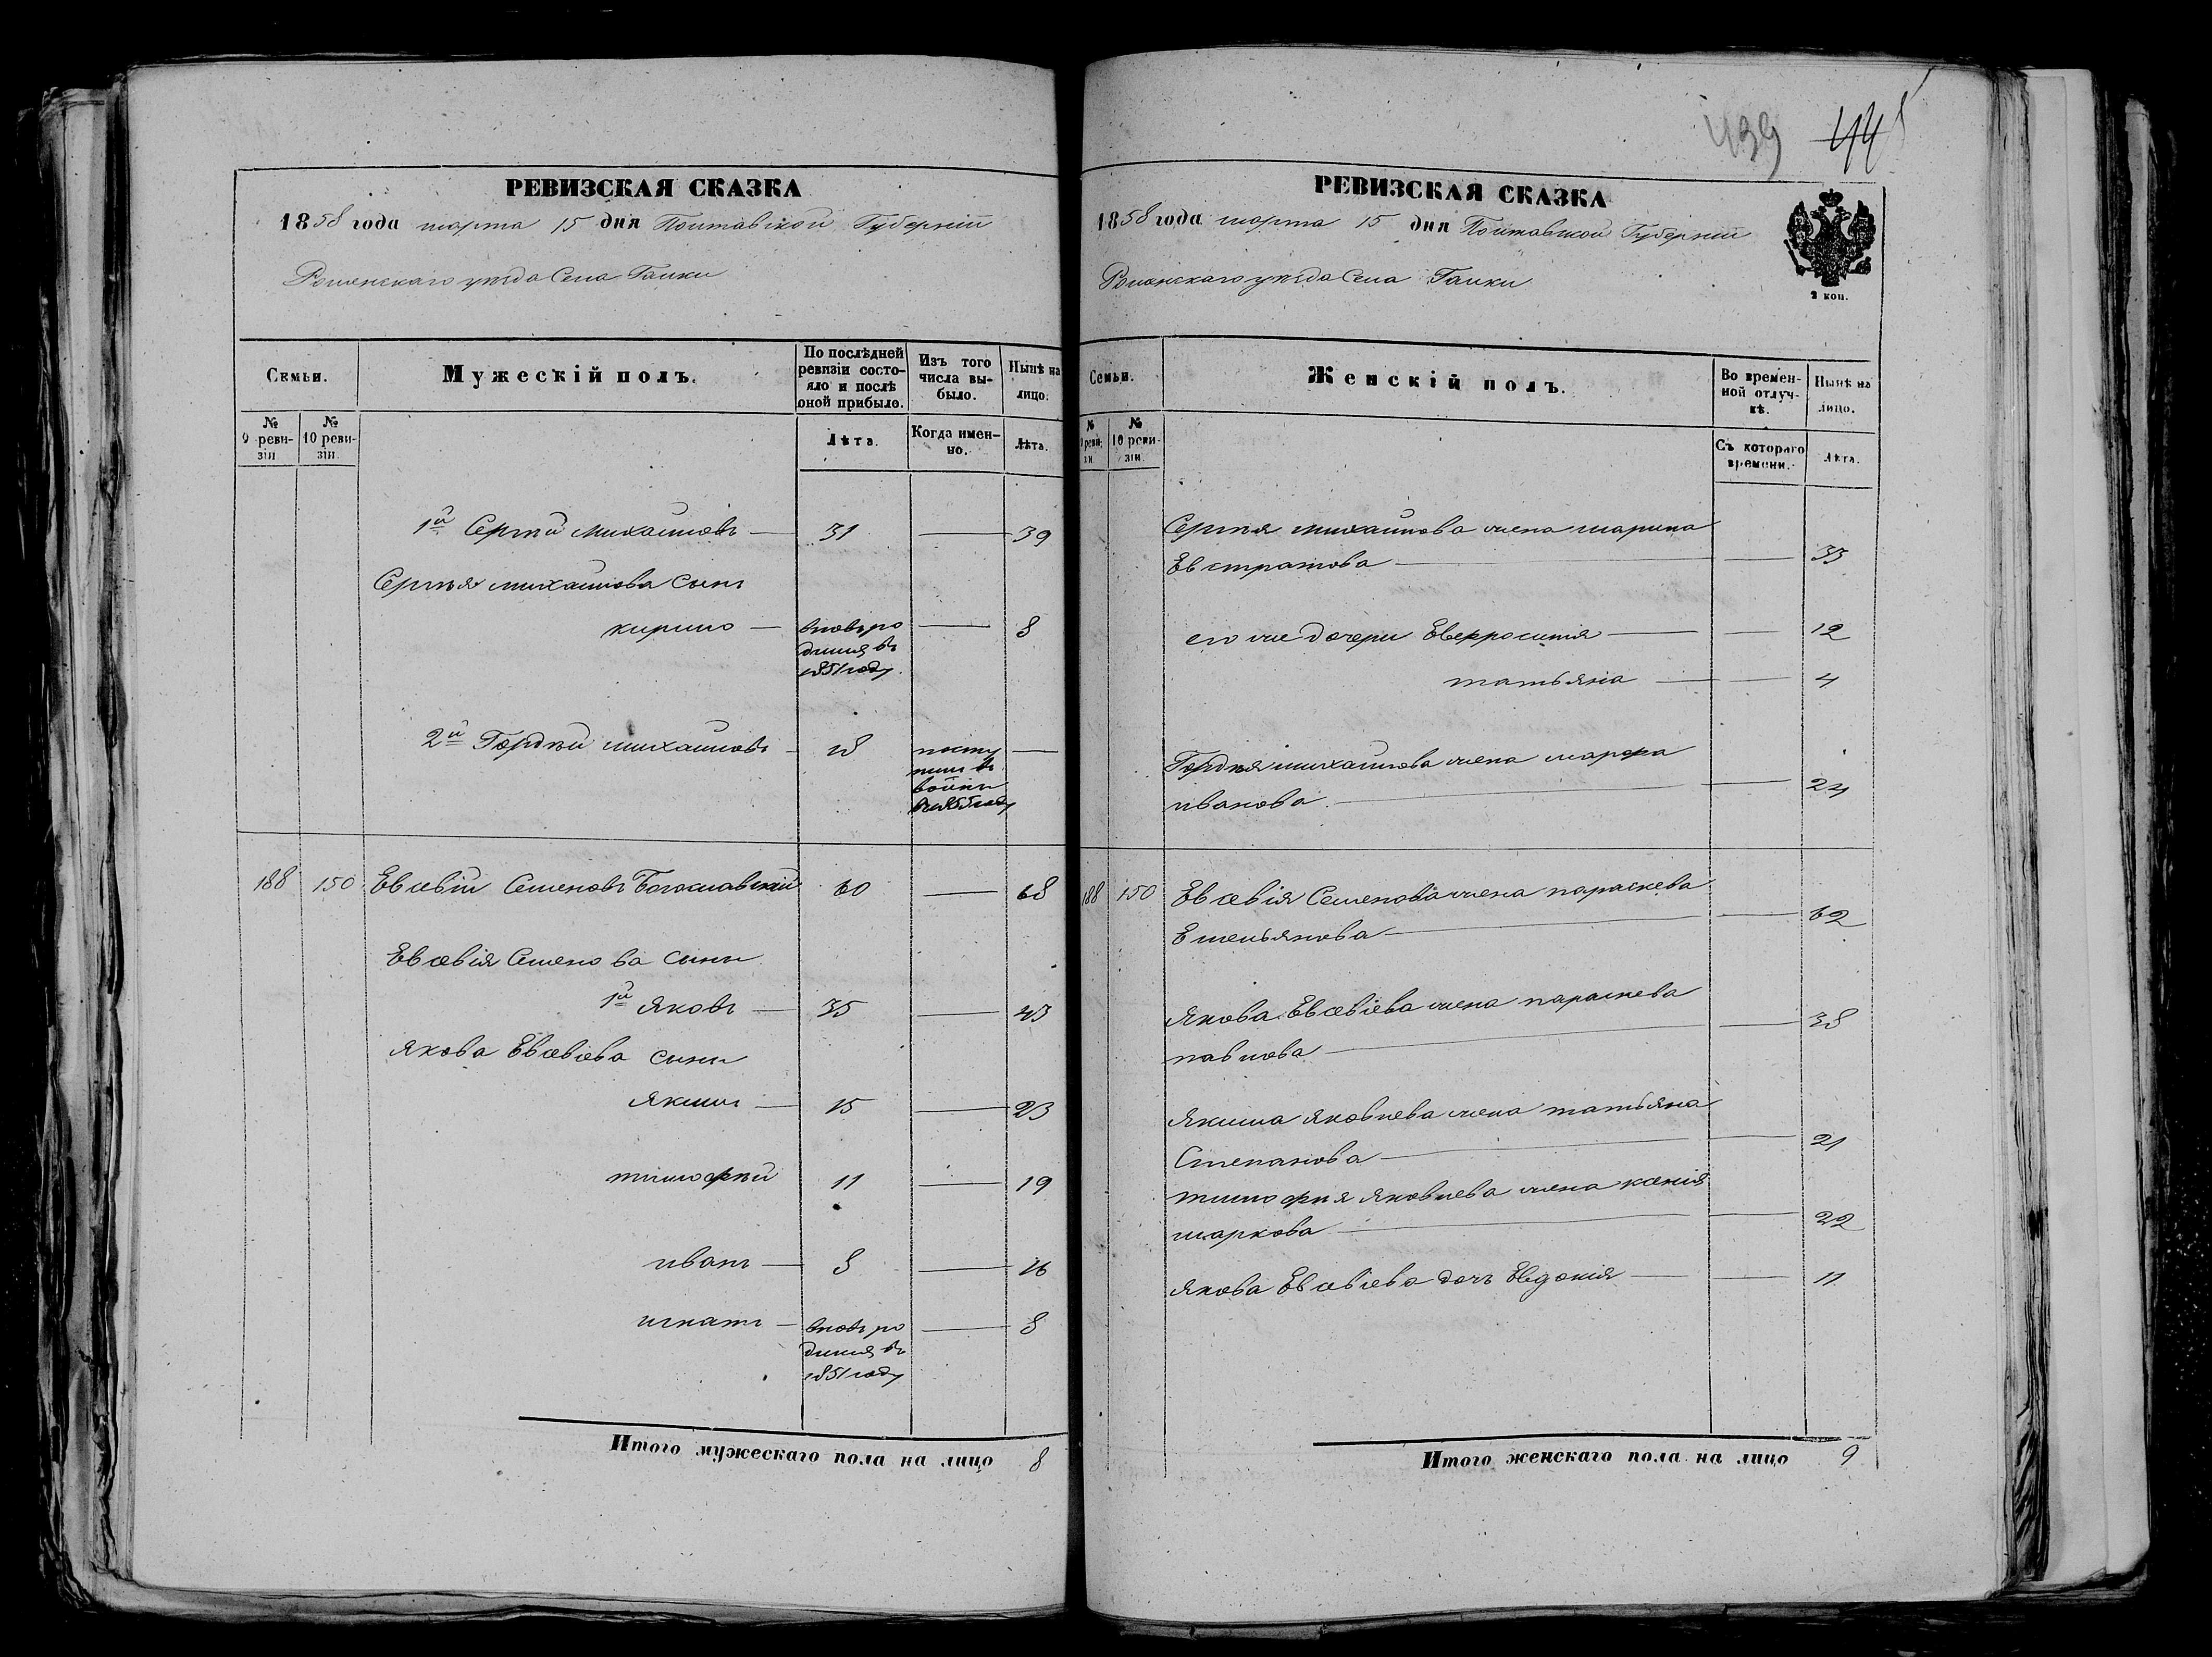 439 445
РЕВИЗСКАЯ СКАЗКА
1858 года марта 15 дня Полтавской Губерніи
Роменскаго уѣзда Села Галки
Семьи.
Мужескій полъ.
По послѣдней ревизіи состояло и послѣ оной прибыло.
Изъ того числа выбыло.
Нынѣ на лицо.
№ 9 ревизіи
№ 10 ревизіи.
Лѣта.
Когда именно.
Лѣта.
1й Сергѣй Михаиловъ — 31 — 39
Сергѣя михаилова сынъ
кирило — вновь ро — 8
дился въ
1851 году
2й Гордѣй михаиловъ — 18 посту —
пилъ въ
войны
1855 году
188 150 Евсевій Семеновъ Богославскій 60 — 68
Евсевія Семенова сыны
1й Яковъ — 35 — 43
Якова Евсевіева сыны
Якимъ — 15 — 23
тимофѣй 11 — 19
иванъ — 8 — 16
игнатъ — вновь ро — 8
дился въ
1851 году
Итого мужескаго пола на лицо 8
РЕВИЗСКАЯ СКАЗКА
1858 года марта 15 дня Полтавской Губерніи
Роменскаго уѣзда Села Галки
2 коп.
Семьи.
Женскій полъ.
Во временной отлучкѣ.
Нынѣ на лицо.
№ 9 ревизіи
№ 10 ревизіи.
Съ котораго времени.
Лѣта.
Сергѣя михаилова жена марина
Евстратова — — 33
его же дочери Евфросинія — — 12
татьяна — — 4
Гордѣя михаилова жена марфа
иванова — — 24
188 150 Евсевія Семенова жена параскева
Емельянова — — 62
Якова Евсевіева жена параскева
павлова — — 38
Якима яковлева жена татьяна
Степанова — — 21
тимофѣя яковлева жена ксенія
маркова — — 22
Якова Евсевіева дочь Евдокія — — 11
Итого женскаго пола на лицо 9